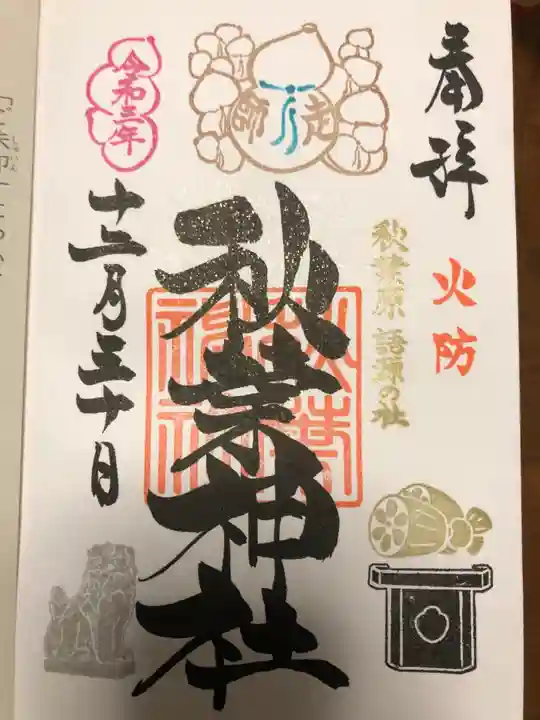 奉拝
火防
秋葉原 語源の社
走師
秋葉神社
秋葉神社
令和三年
十二月三十日